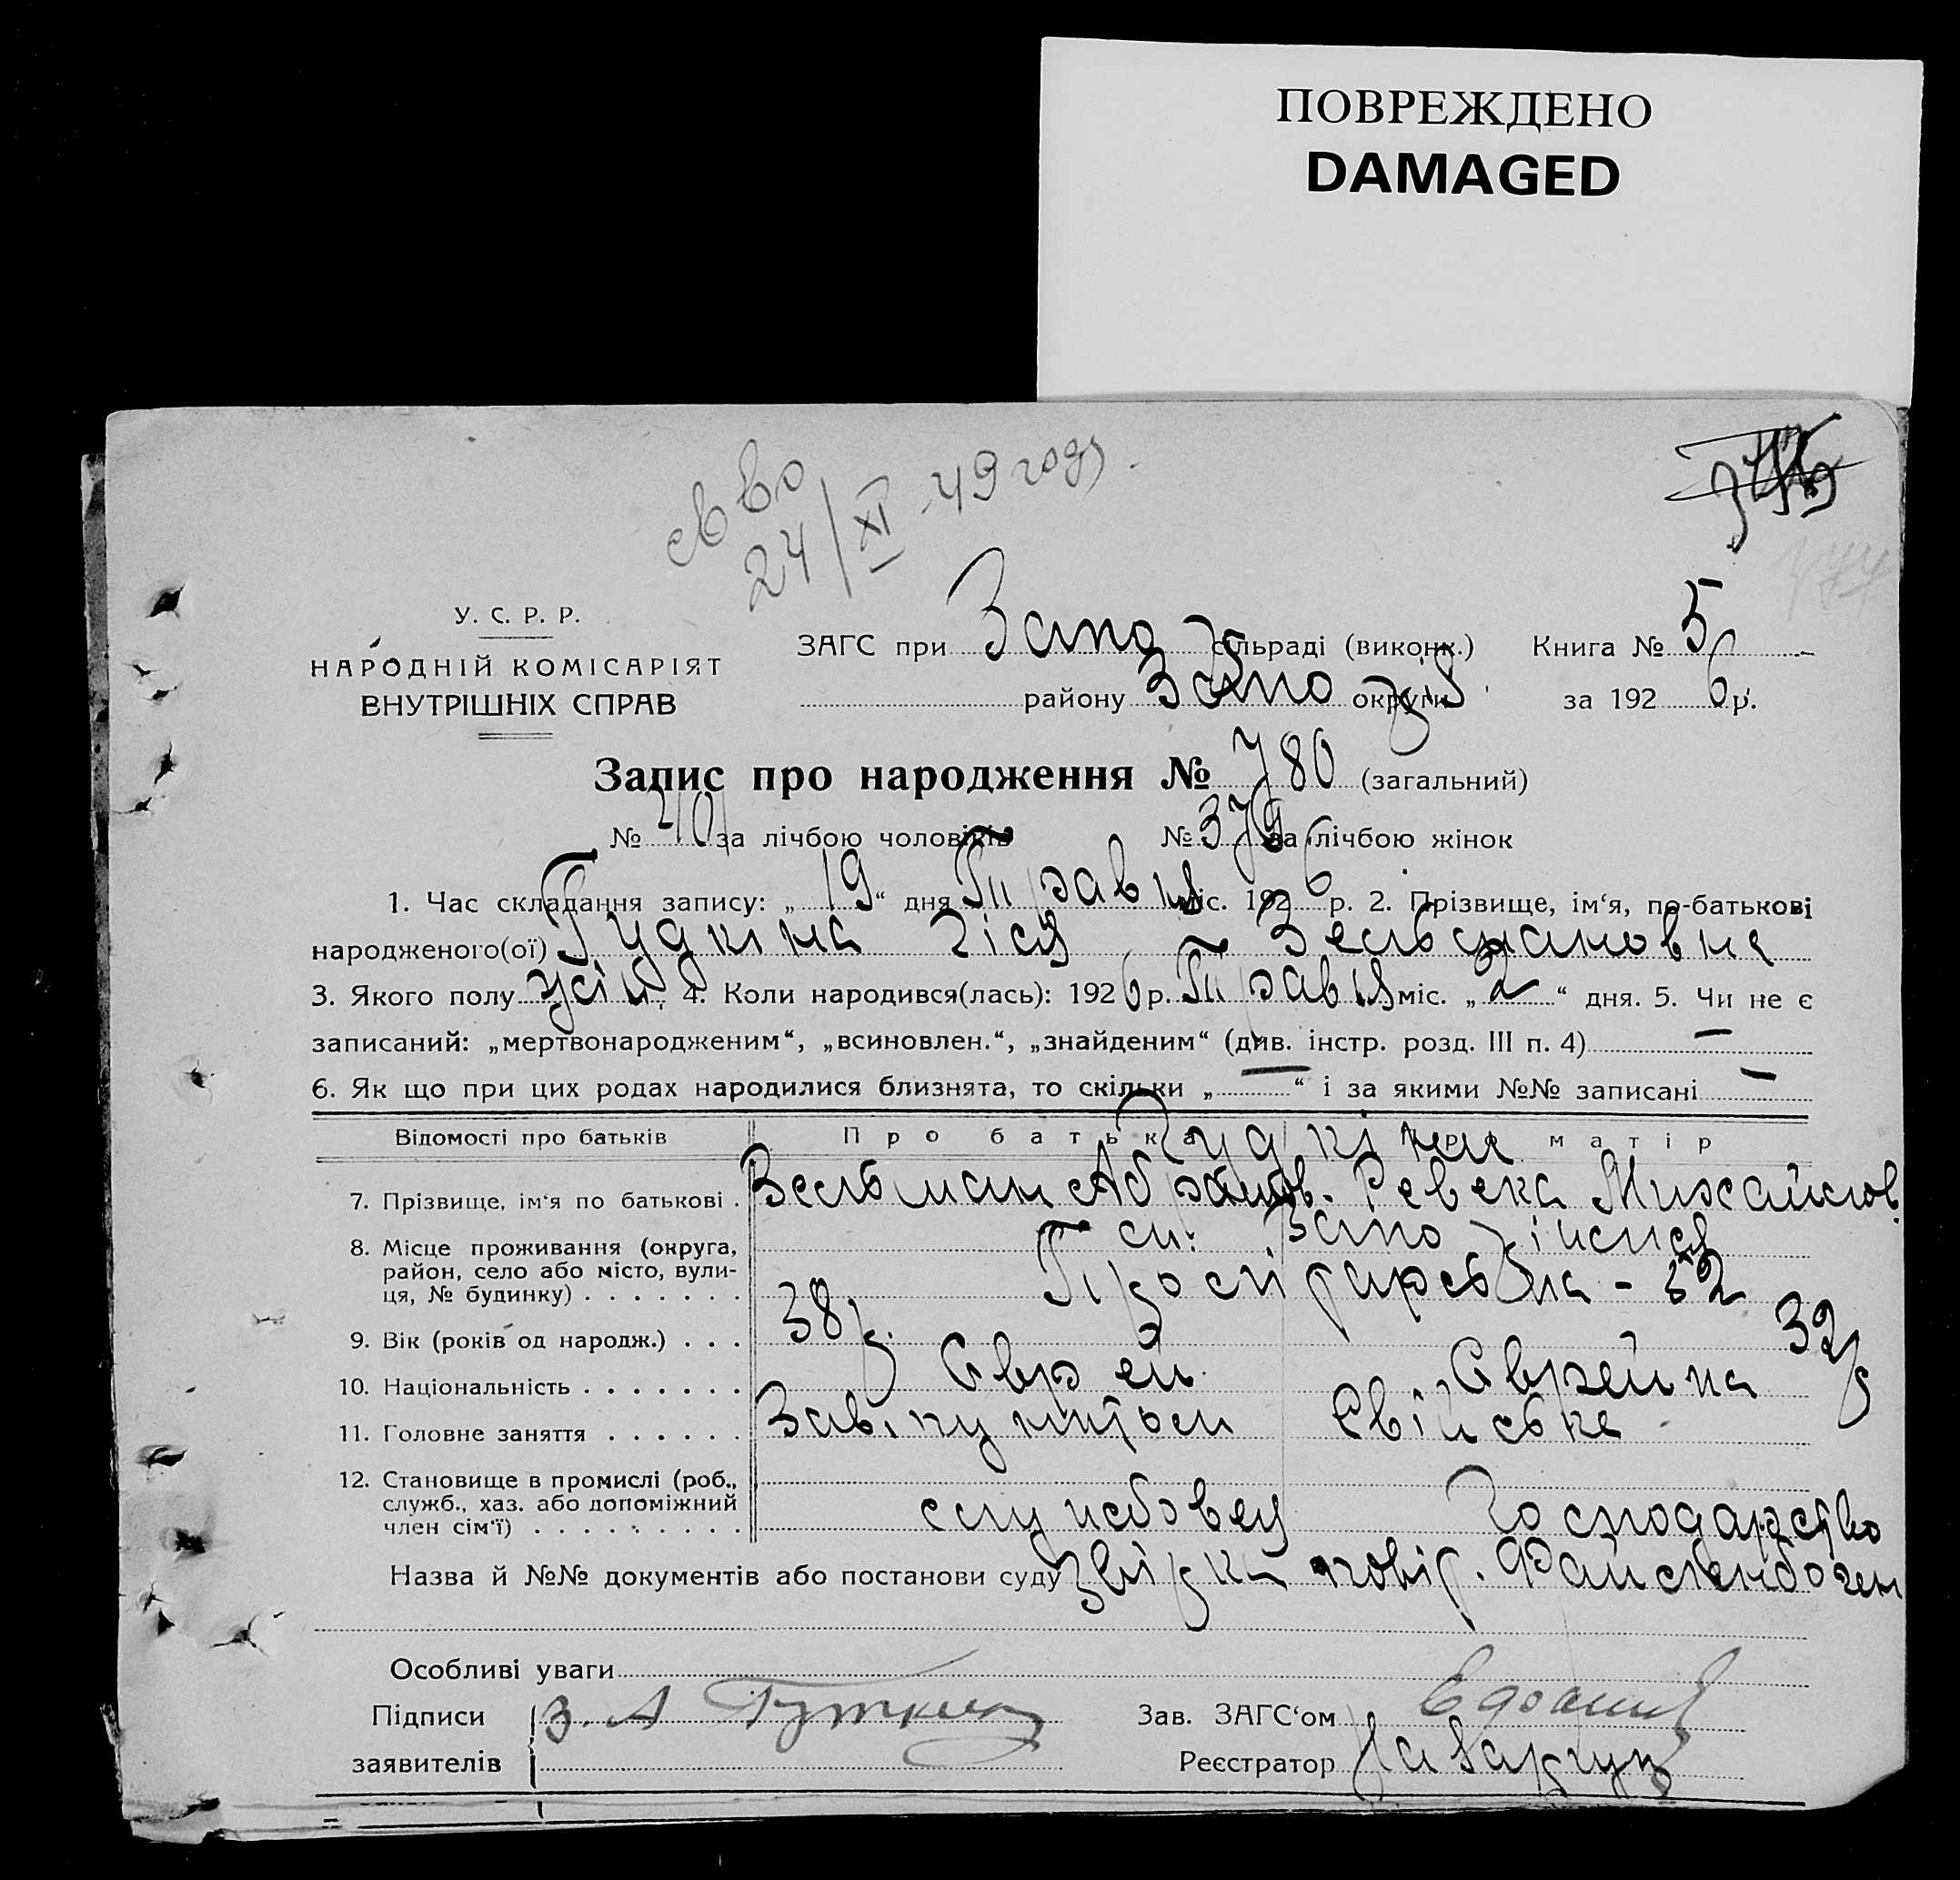 ПОВРЕЖДЕНО
DAMAGED
24/XI-49 году.
У. С. Р. Р.
НАРОДНІЙ КОМІСАРІЯТ
ВНУТРІШНІХ СПРАВ
ЗАГС при Запо сільраді (виконк.) Книга № 5
району Запо округи за 1926 р.
Запис про народження № 780 (загальний)
№ 401 за лічбою чоловіків № 379 за лічбою жінок
1. Час складання запису: „19“ дня Травня міс. 1926 р. 2. Прізвище, ім‘я, по-батькові
народженого(ої) Гудкіна Зельмановна
3. Якого полу жін. 4. Коли народився(лась): 1926 р. Травня міс. „2“ дня. 5. Чи не є
записаний: „мертвонародженим“, „всиновлен.“, „знайденим“ (див. інстр. розд. III п. 4) —
6. Як що при цих родах народилися близнята, то скільки „—“ і за якими №№ записані —
Відомості про батьків Про батька Про матір
Гудкіни
7. Прізвище, ім‘я по батькові . Зельман Абрамов. Ревека Михайлов.
8. Місце проживання (округа,
район, село або місто, вули-
ця, № будинку) . . . . . . . м. Запоріжжя
- 52
9. Вік (років од народж.) . . . 38 р. 32 р
10. Національність . . . . . . . Єврей Єврейка
11. Головне заняття . . . . . . Свійське
12. Становище в промислі (роб.,
служб., хаз. або допоміжний
член сім‘ї) . . . . . . . . . службовец господарство
Назва й №№ документів або постанови суду
Особливі уваги
Підписи З. А Гуткин Зав. ЗАГС‘ом
заявителів Реєстратор